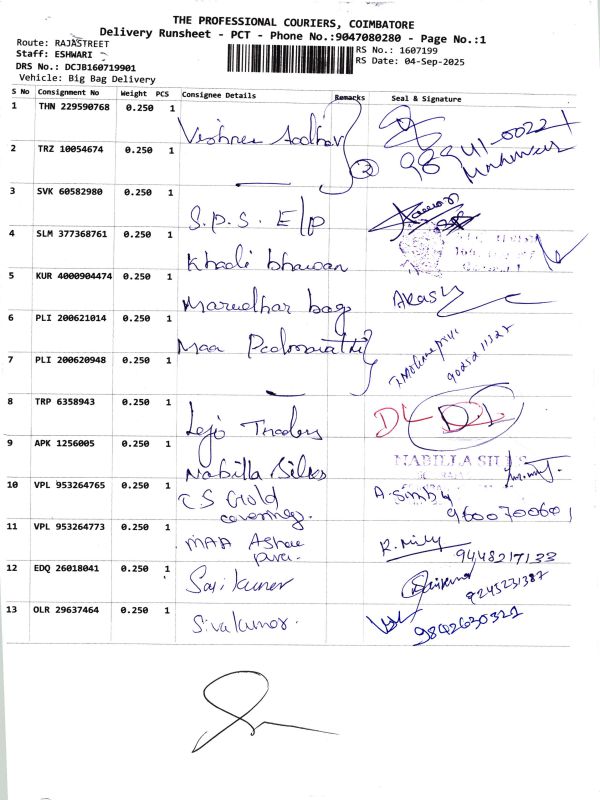 THE PROFESSIONAL COURIERS, COIMBATORE
Delivery Runsheet - PCT - Phone No.:9047080280 - Page No.:1
Route: RAJASTREET
Staff: ESHWARI
DRS No.: DCJB160719901
Vehicle: Big Bag Delivery
RS No.: 1607199
RS Date: 04-Sep-2025
S No Consignment No Weight PCS Consignee Details Remarks Seal & Signature
1 THN 229590768 0.250 1
2 TRZ 10054674 0.250 1 2
3 SVK 60582980 0.250 1 S.P.S. E/p
4 SLM 377368761 0.250 1 Khadi bhawan
5 KUR 4000904474 0.250 1 Marudhar bags Akash
6 PLI 200621014 0.250 1 Maa
7 PLI 200620948 0.250 1
8 TRP 6358943 0.250 1 Lejo Traders
9 APK 1256005 0.250 1 Nabilla Silks NABILLA SILKS
10 VPL 953264765 0.250 1 CS Gold covering. 9600700601
11 VPL 953264773 0.250 1 MAA 9448217133
12 EDQ 26018041 0.250 1 Sasikumar 9245231387
13 OLR 29637464 0.250 1 Sivakumar. 9842630321